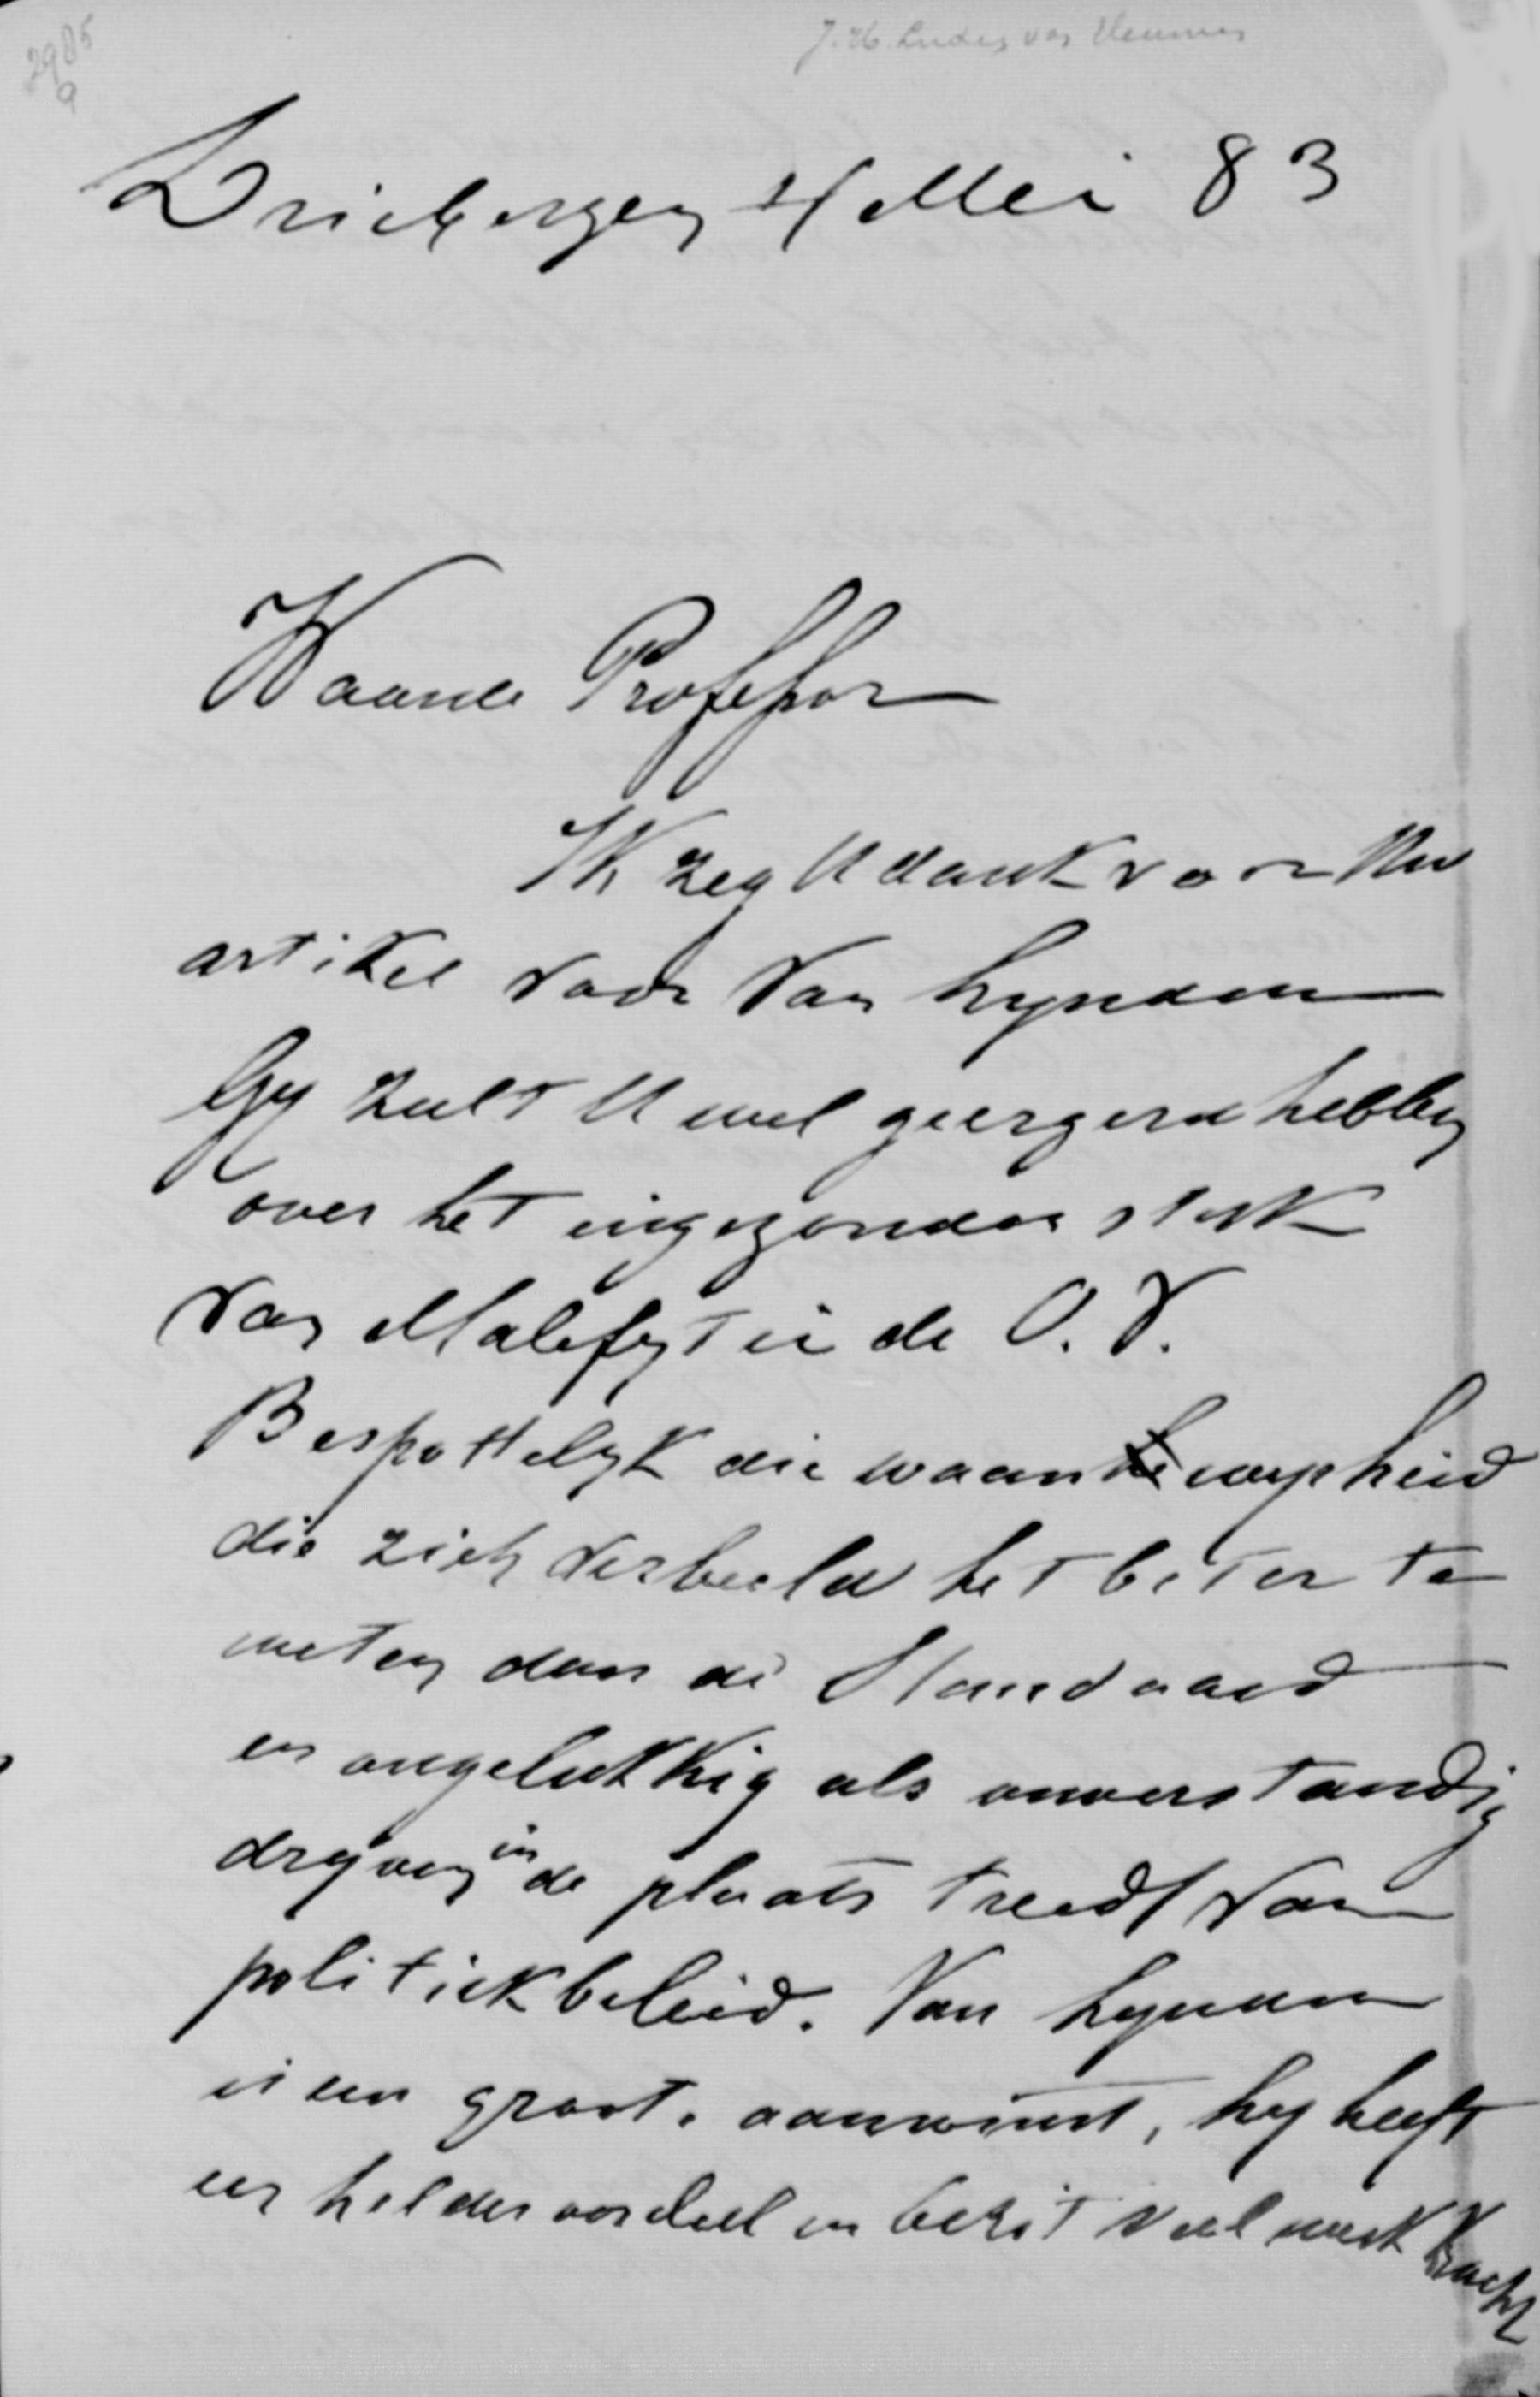 2985
a
J. H. Ludes van Heumen
Driebergen 4 Mei 83
Waarde Professor
Ik zeg U dank voor Uw
artikel voor Van Lynden
Gy zult U wel geergerd hebben
over het ingezonden stuk
van Malefyt in de O. V.
Bespottelyk die waanwysheid
die zich verbeeld het beter te
weten dan de Standaard
en ongelukkig als onverstandig
dryven in de plaats treedt van
politiek beleid. Van Lynden
is een groote aanwinst, hy heeft
een helder oordeel en bezit veel werkkracht